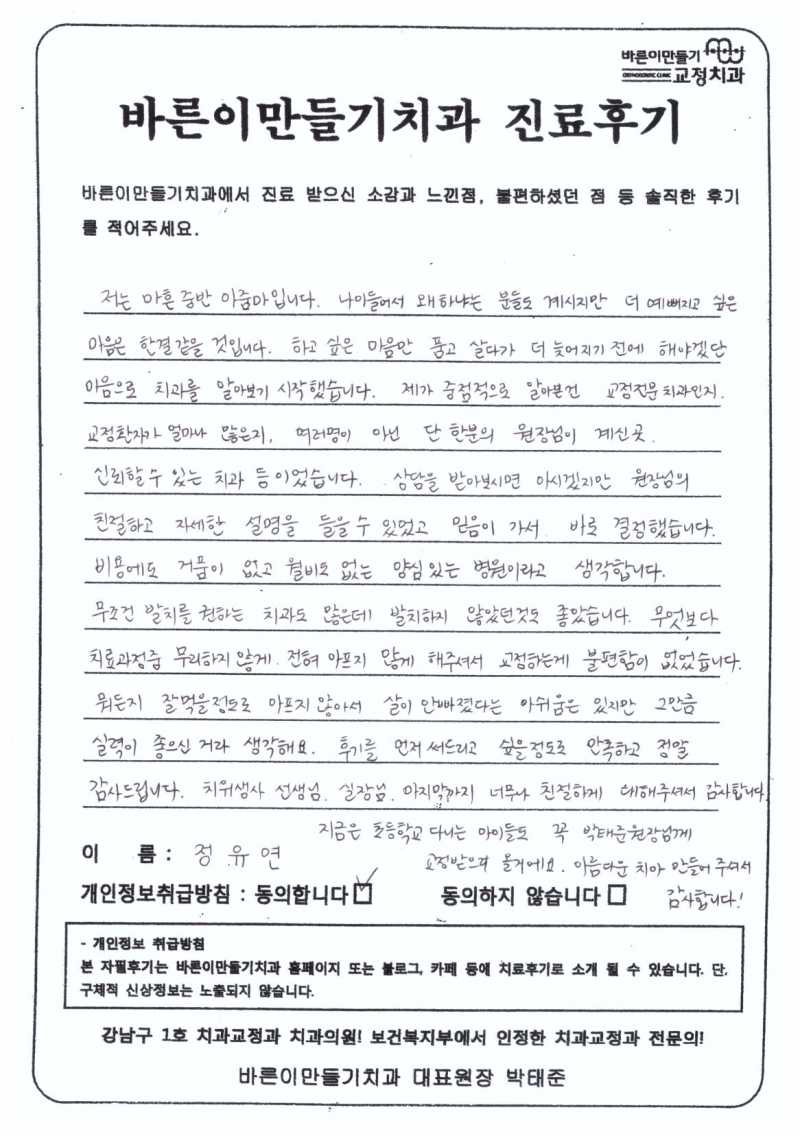 바른이만들기
ORTHODONTIC CLINIC 교정치과
바른이만들기치과 진료후기
바른이만들기치과에서 진료 받으신 소감과 느낀점, 불편하셨던 점 등 솔직한 후기
를 적어주세요.
저는 마흔 중반 아줌마입니다. 나이들어서 왜하냐는 분들도 계시지만 더 예뻐지고 싶은
마음은 한결같을 것입니다. 하고 싶은 마음만 품고 살다가 더 늦어지기 전에 해야겠단
마음으로 치과를 알아보기 시작했습니다. 제가 중점적으로 알아본건 교정전문치과인지.
교정환자가 얼마나 많은지, 여러명이 아닌 단 한분의 원장님이 계신곳.
신뢰할 수 있는 치과 등이었습니다. 상담을 받아보시면 아시겠지만 원장님의
친절하고 자세한 설명을 들을 수 있었고 믿음이 가서 바로 결정했습니다.
비용에도 거품이 없고 월비도 없는 양심있는 병원이라고 생각합니다.
무조건 발치를 권하는 치과도 많은데 발치하지 않았던것도 좋았습니다. 무엇보다
치료과정중 무리하지 않게. 전혀 아프지 않게 해주셔서 교정하는게 불편함이 없었습니다.
뭐든지 잘먹을정도로 아프지 않아서 살이 안빠졌다는 아쉬움은 있지만 그만큼
실력이 좋으신 거라 생각해요. 후기를 먼저 써드리고 싶을정도로 만족하고 정말
감사드립니다. 치위생사 선생님. 실장님. 마지막까지 너무나 친절하게 대해주셔서 감사합니다.
지금은 초등학교 다니는 아이들도 꼭 박태준원장님께
이 름 : 정유연
교정받으러 올거에요. 아름다운 치아 만들어 주셔서
감사합니다!
개인정보취급방침 : 동의합니다 ☑ 동의하지 않습니다 □
- 개인정보 취급방침
본 자필후기는 바른이만들기치과 홈페이지 또는 블로그, 카페 등에 치료후기로 소개 될 수 있습니다. 단,
구체적 신상정보는 노출되지 않습니다.
강남구 1호 치과교정과 치과의원! 보건복지부에서 인정한 치과교정과 전문의!
바른이만들기치과 대표원장 박태준